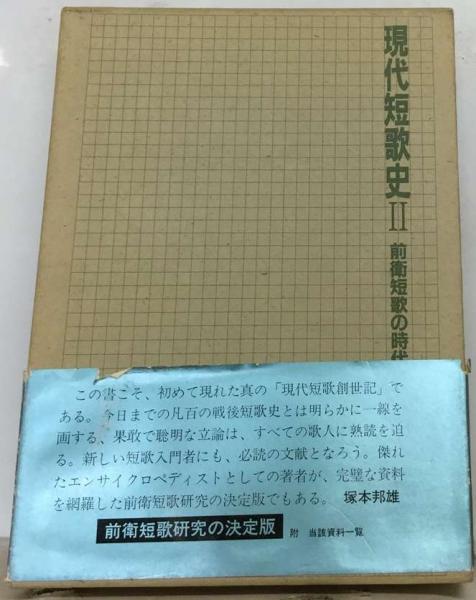 現代短歌史II 前衛短歌の時代
この書こそ、初めて現れた真の「現代短歌創世記」で
ある。今日までの凡百の戦後短歌史とは明らかに一線を
画する、果敢で聡明な立論は、すべての歌人に熟読を迫
る。新しい短歌入門者にも、必読の文献となろう。傑れ
たエンサイクロペディストとしての著者が、完璧な資料
を網羅した前衛短歌研究の決定版でもある。 塚本邦雄
前衛短歌研究の決定版 附 当該資料一覧